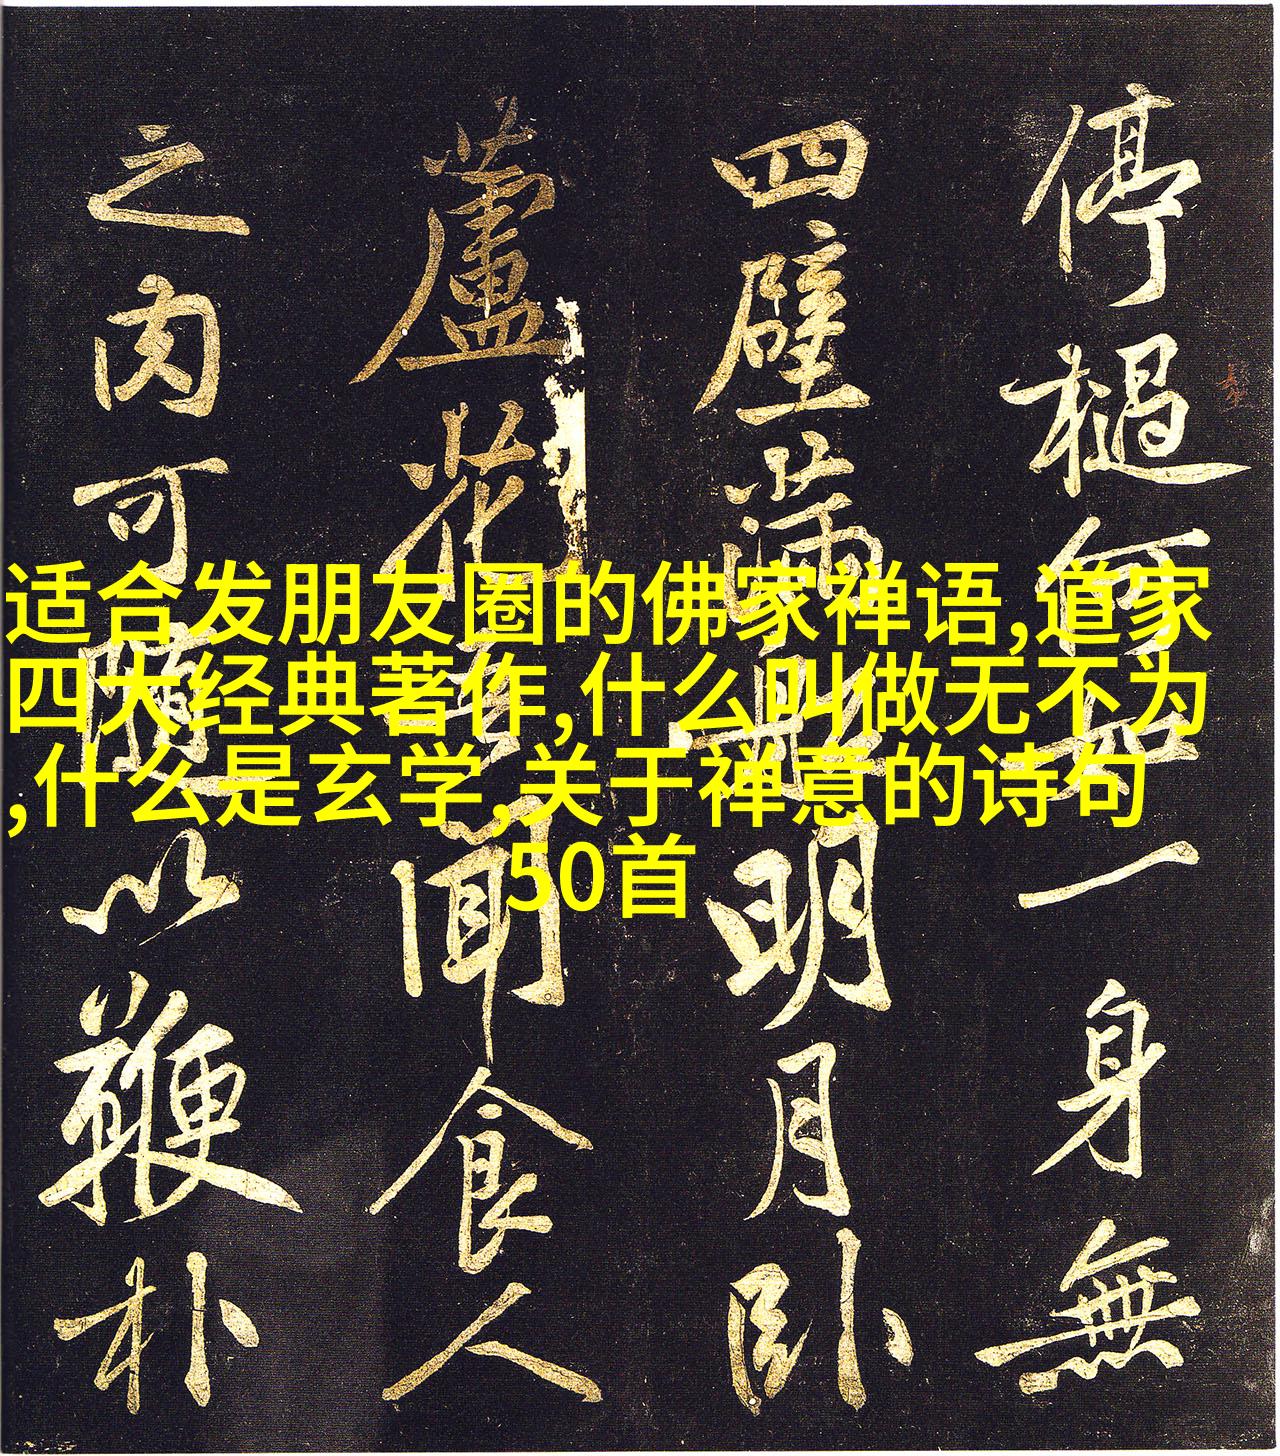 停檛何如一身無
四壁滿船明月卧
蘆花吾聞食人
之肉可隨以鞭朴
适合发朋友圈的佛家禅语,道家
四大经典著作,什么叫做无不为
,什么是玄学,关于禅意的诗句
50首